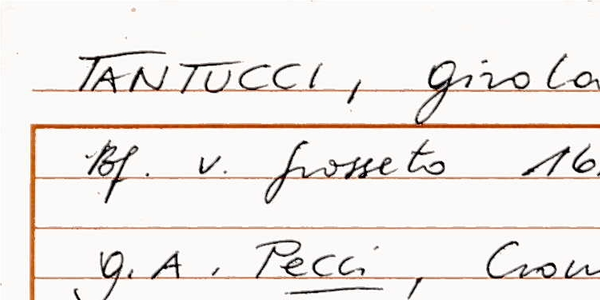 TANTUCCI, Girola
Bf. v. Grosseto 16
G. A. Pecci, Cron